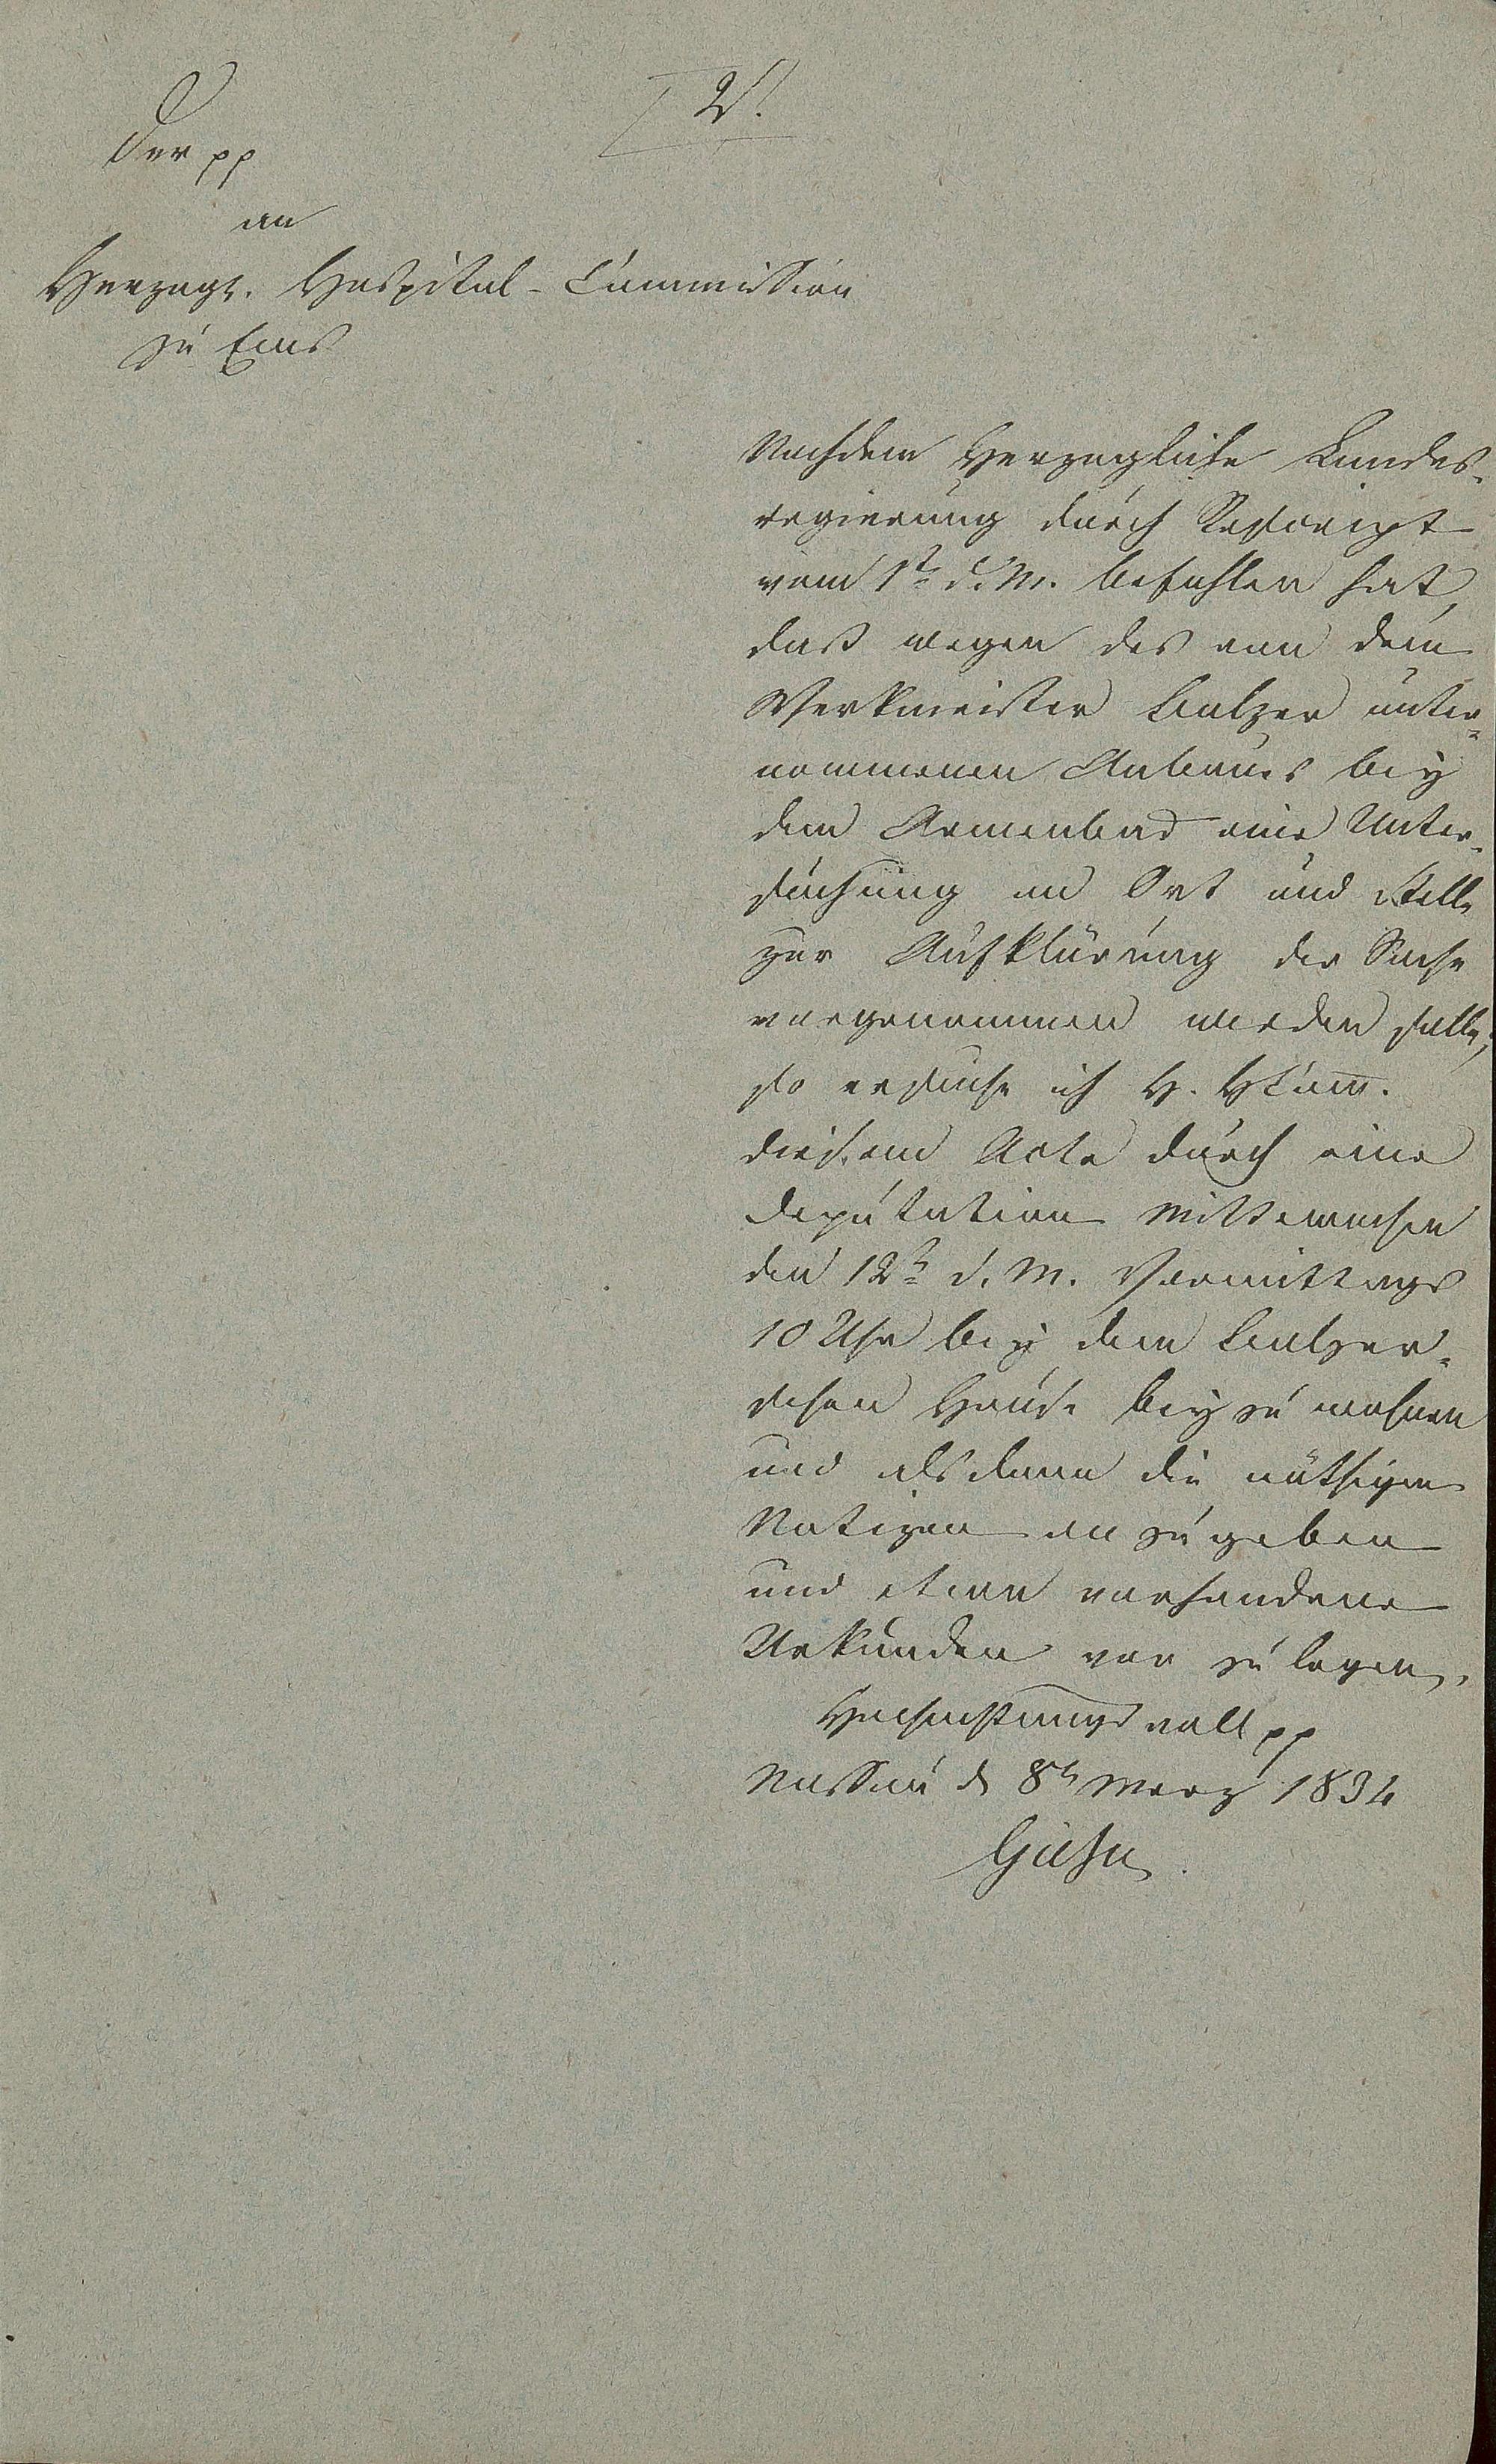 2.
Der pp
an
Herzogl. Hospital-Commission
zu Ems
Nachdem Herzogliche Landes-
regierung durch Rescript
vom 1t d. M. befohlen hat,
daß wegen des von dem
Werkmeister Balzer unter-
nommenen Anbaues bey
dem Armenbad eine Unter-
suchung an Ort und Stelle
zur Aufklärung der Sache
vorgenommen werden solle;
so ersuche ich H. HCom.
diesem Acte durch eine
Deputation Mittwochen
den 12t d. M. Vormittags
10 Uhr bey dem Balzer-
schen Hause bey zu wohnen
und alsdann die nöthigen
Notizen an zu geben
und etwa vorhandene
Urkunden vor zu legen.
Hochachtungsvoll pp
Nassau d 8t März 1834